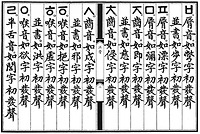 ㅂ脣音如彆字初發聲
並書如步字初發聲
ㅍ脣音如漂字初發聲
ㅁ脣音如彌字初發聲
ㅈ齒音如即字初發聲
並書如慈字初發聲
ㅊ齒音如侵字初發聲
ㅅ齒音如戌字初發聲
並書如邪字初發聲
ㆆ喉音如挹字初發聲
ㅎ喉音如虛字初發聲
並書如洪字初發聲
ㅇ喉音如欲字初發聲
ㄹ半舌音如閭字初發聲